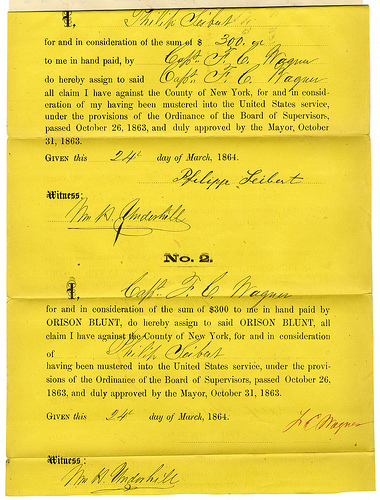 I, Philip Seibert
for and in consideration of the sum of $ 300.
to me in hand paid, by Capt. F. C. Wagner
do hereby assign to said Capt. F. C. Wagner
all claim I have against the County of New York, for and in consid-
eration of my having been mustered into the United States service,
under the provisions of the Ordinance of the Board of Supervisors,
passed October 26, 1863, and duly approved by the Mayor, October
31, 1863.
GIVEN this 24t day of March, 1864.
Philipp Seibert
Witness:
Wm H. Underhill
No. 2.
I, Capt. F. C. Wagner
for and in consideration of the sum of $300 to me in hand paid by
ORISON BLUNT, do hereby assign to said ORISON BLUNT, all
claim I have against the County of New York, for and in consideration
of Philip Seibert
having been mustered into the United States service, under the provi-
sions of the Ordinance of the Board of Supervisors, passed October 26,
1863, and duly approved by the Mayor, October 31, 1863.
GIVEN this 24t day of March, 1864.
F. C. Wagner
Witness:
Wm H. Underhill